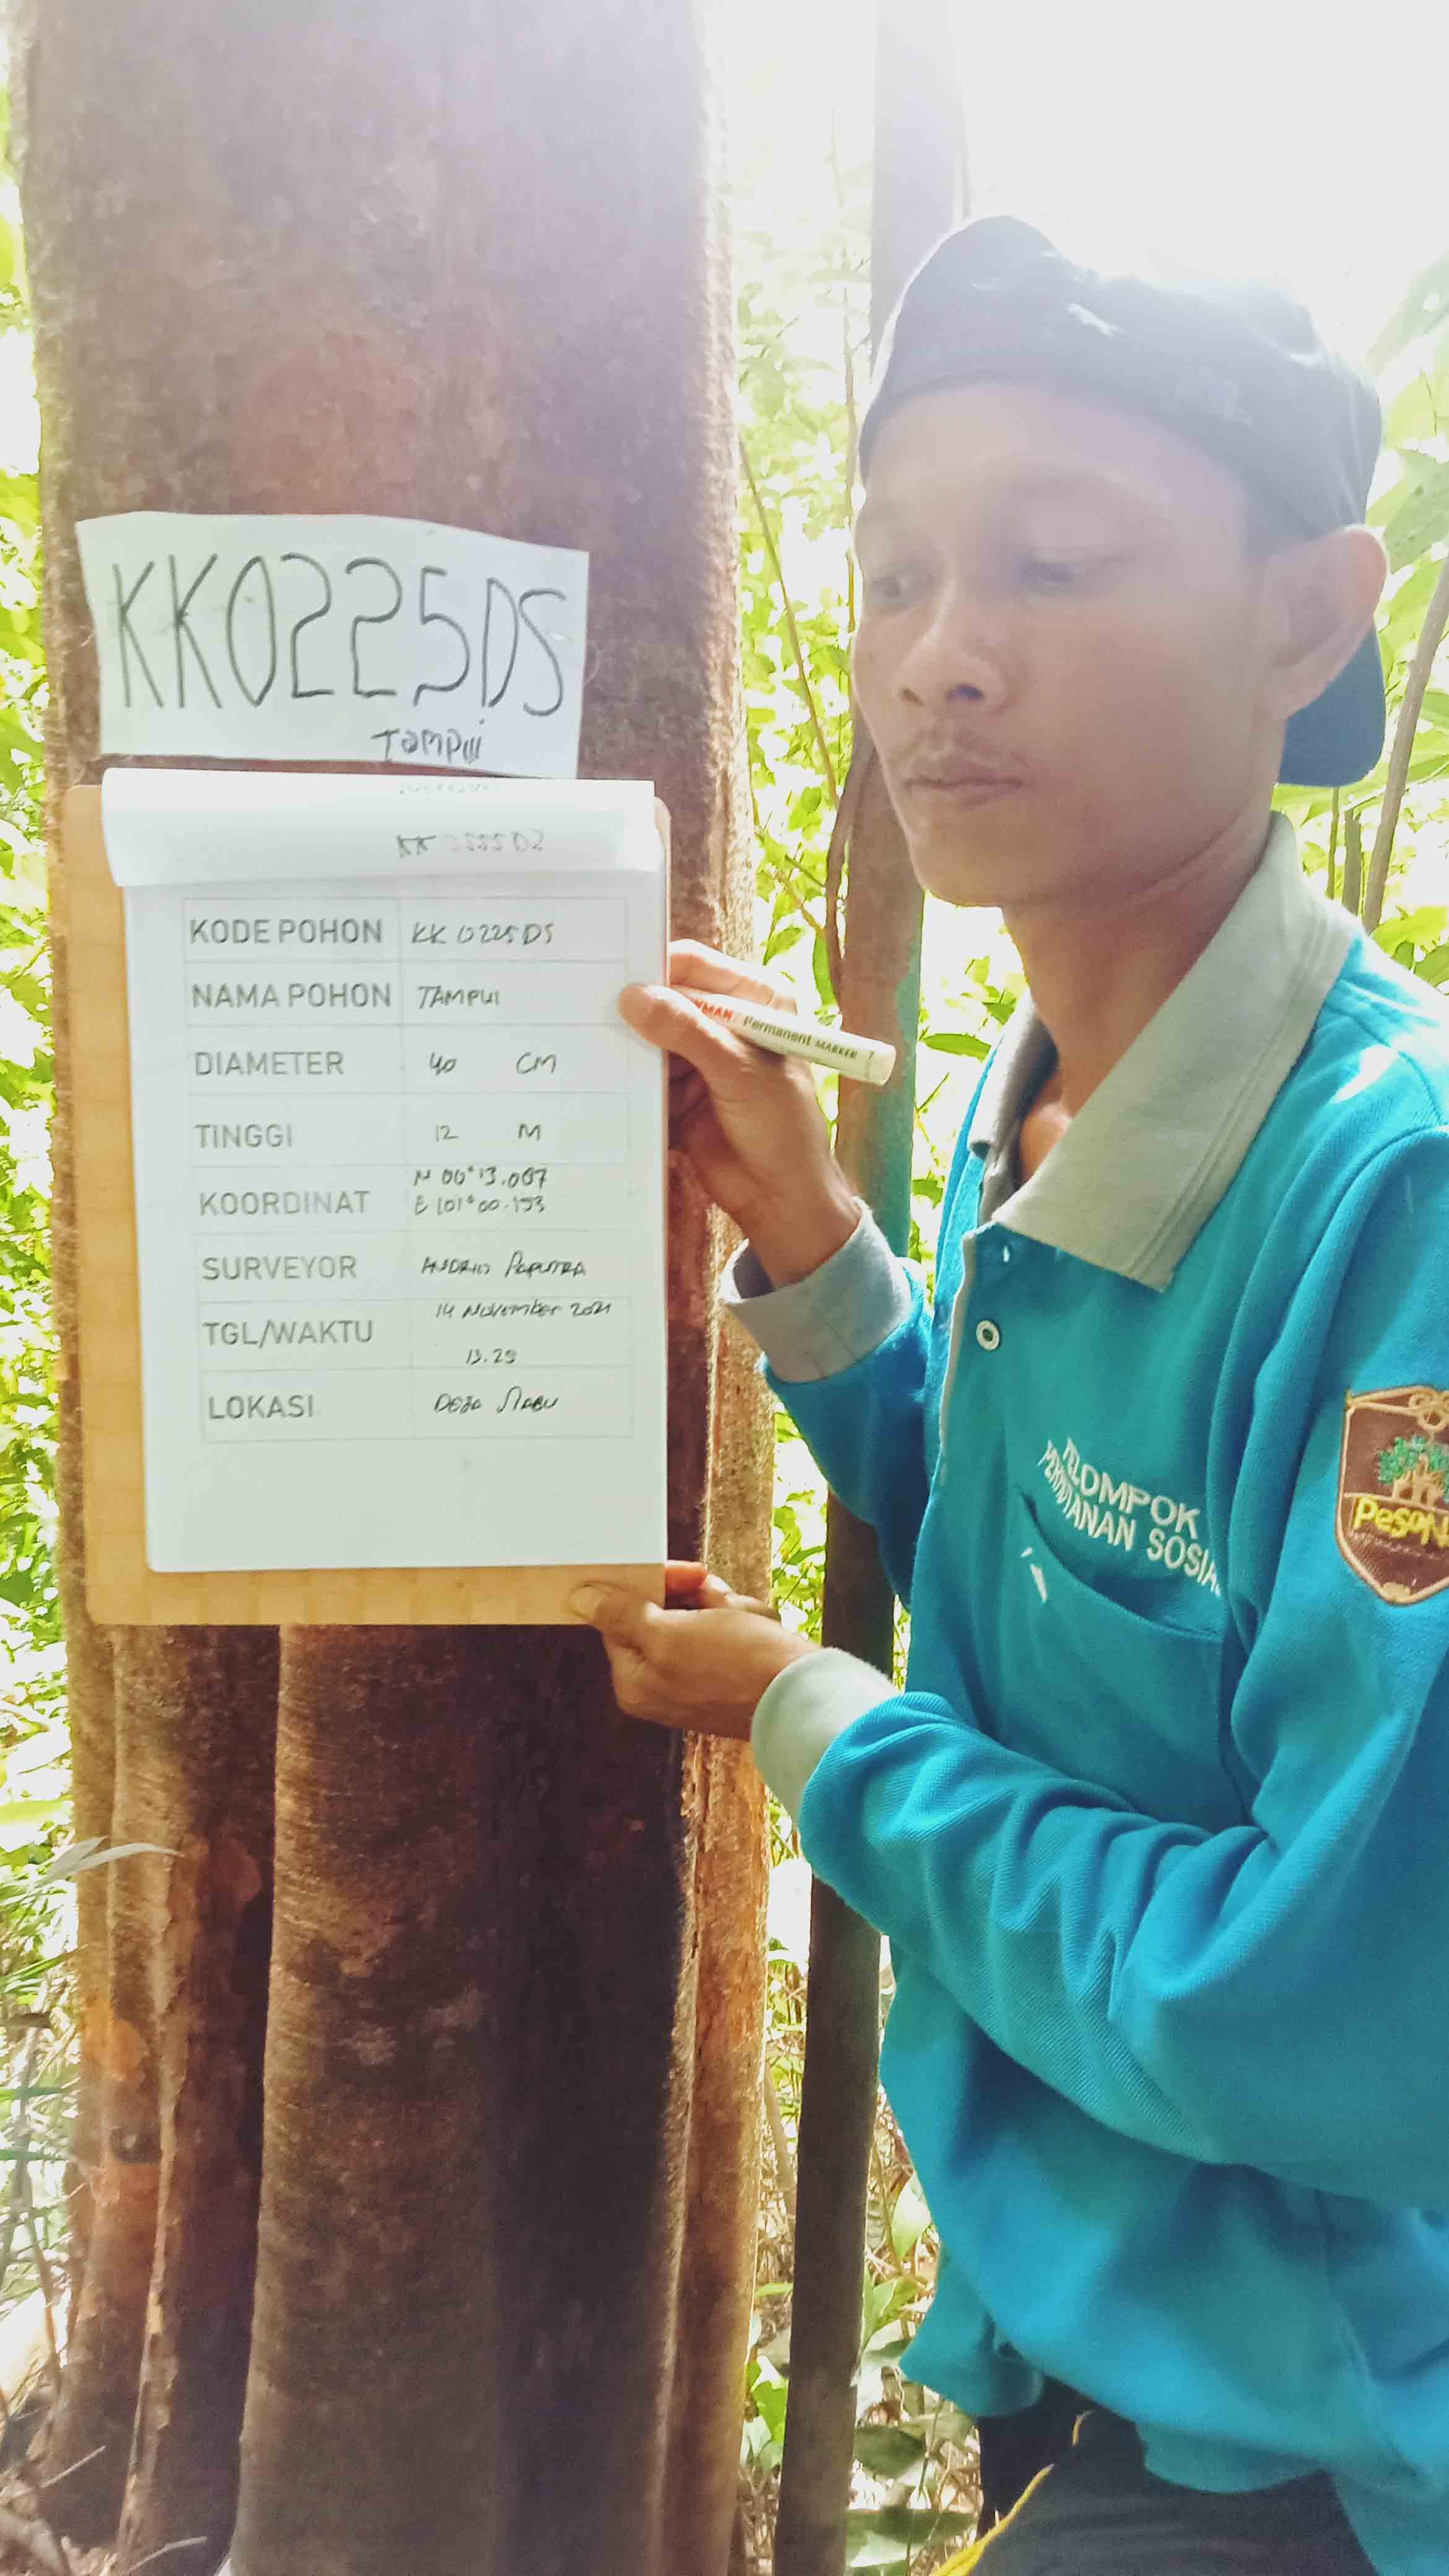 KK0225DS
Tampui
KODE POHON KK 0225DS
NAMA POHON TAMPUI
DIAMETER 40 CM
TINGGI 12 M
KOORDINAT N 00°13.007
E 101°00.153
SURVEYOR
TGL/WAKTU 14 November 2021
13.29
LOKASI DESA
Permanent MARKER
KELOMPOK
PERHUTANAN SOSIAL